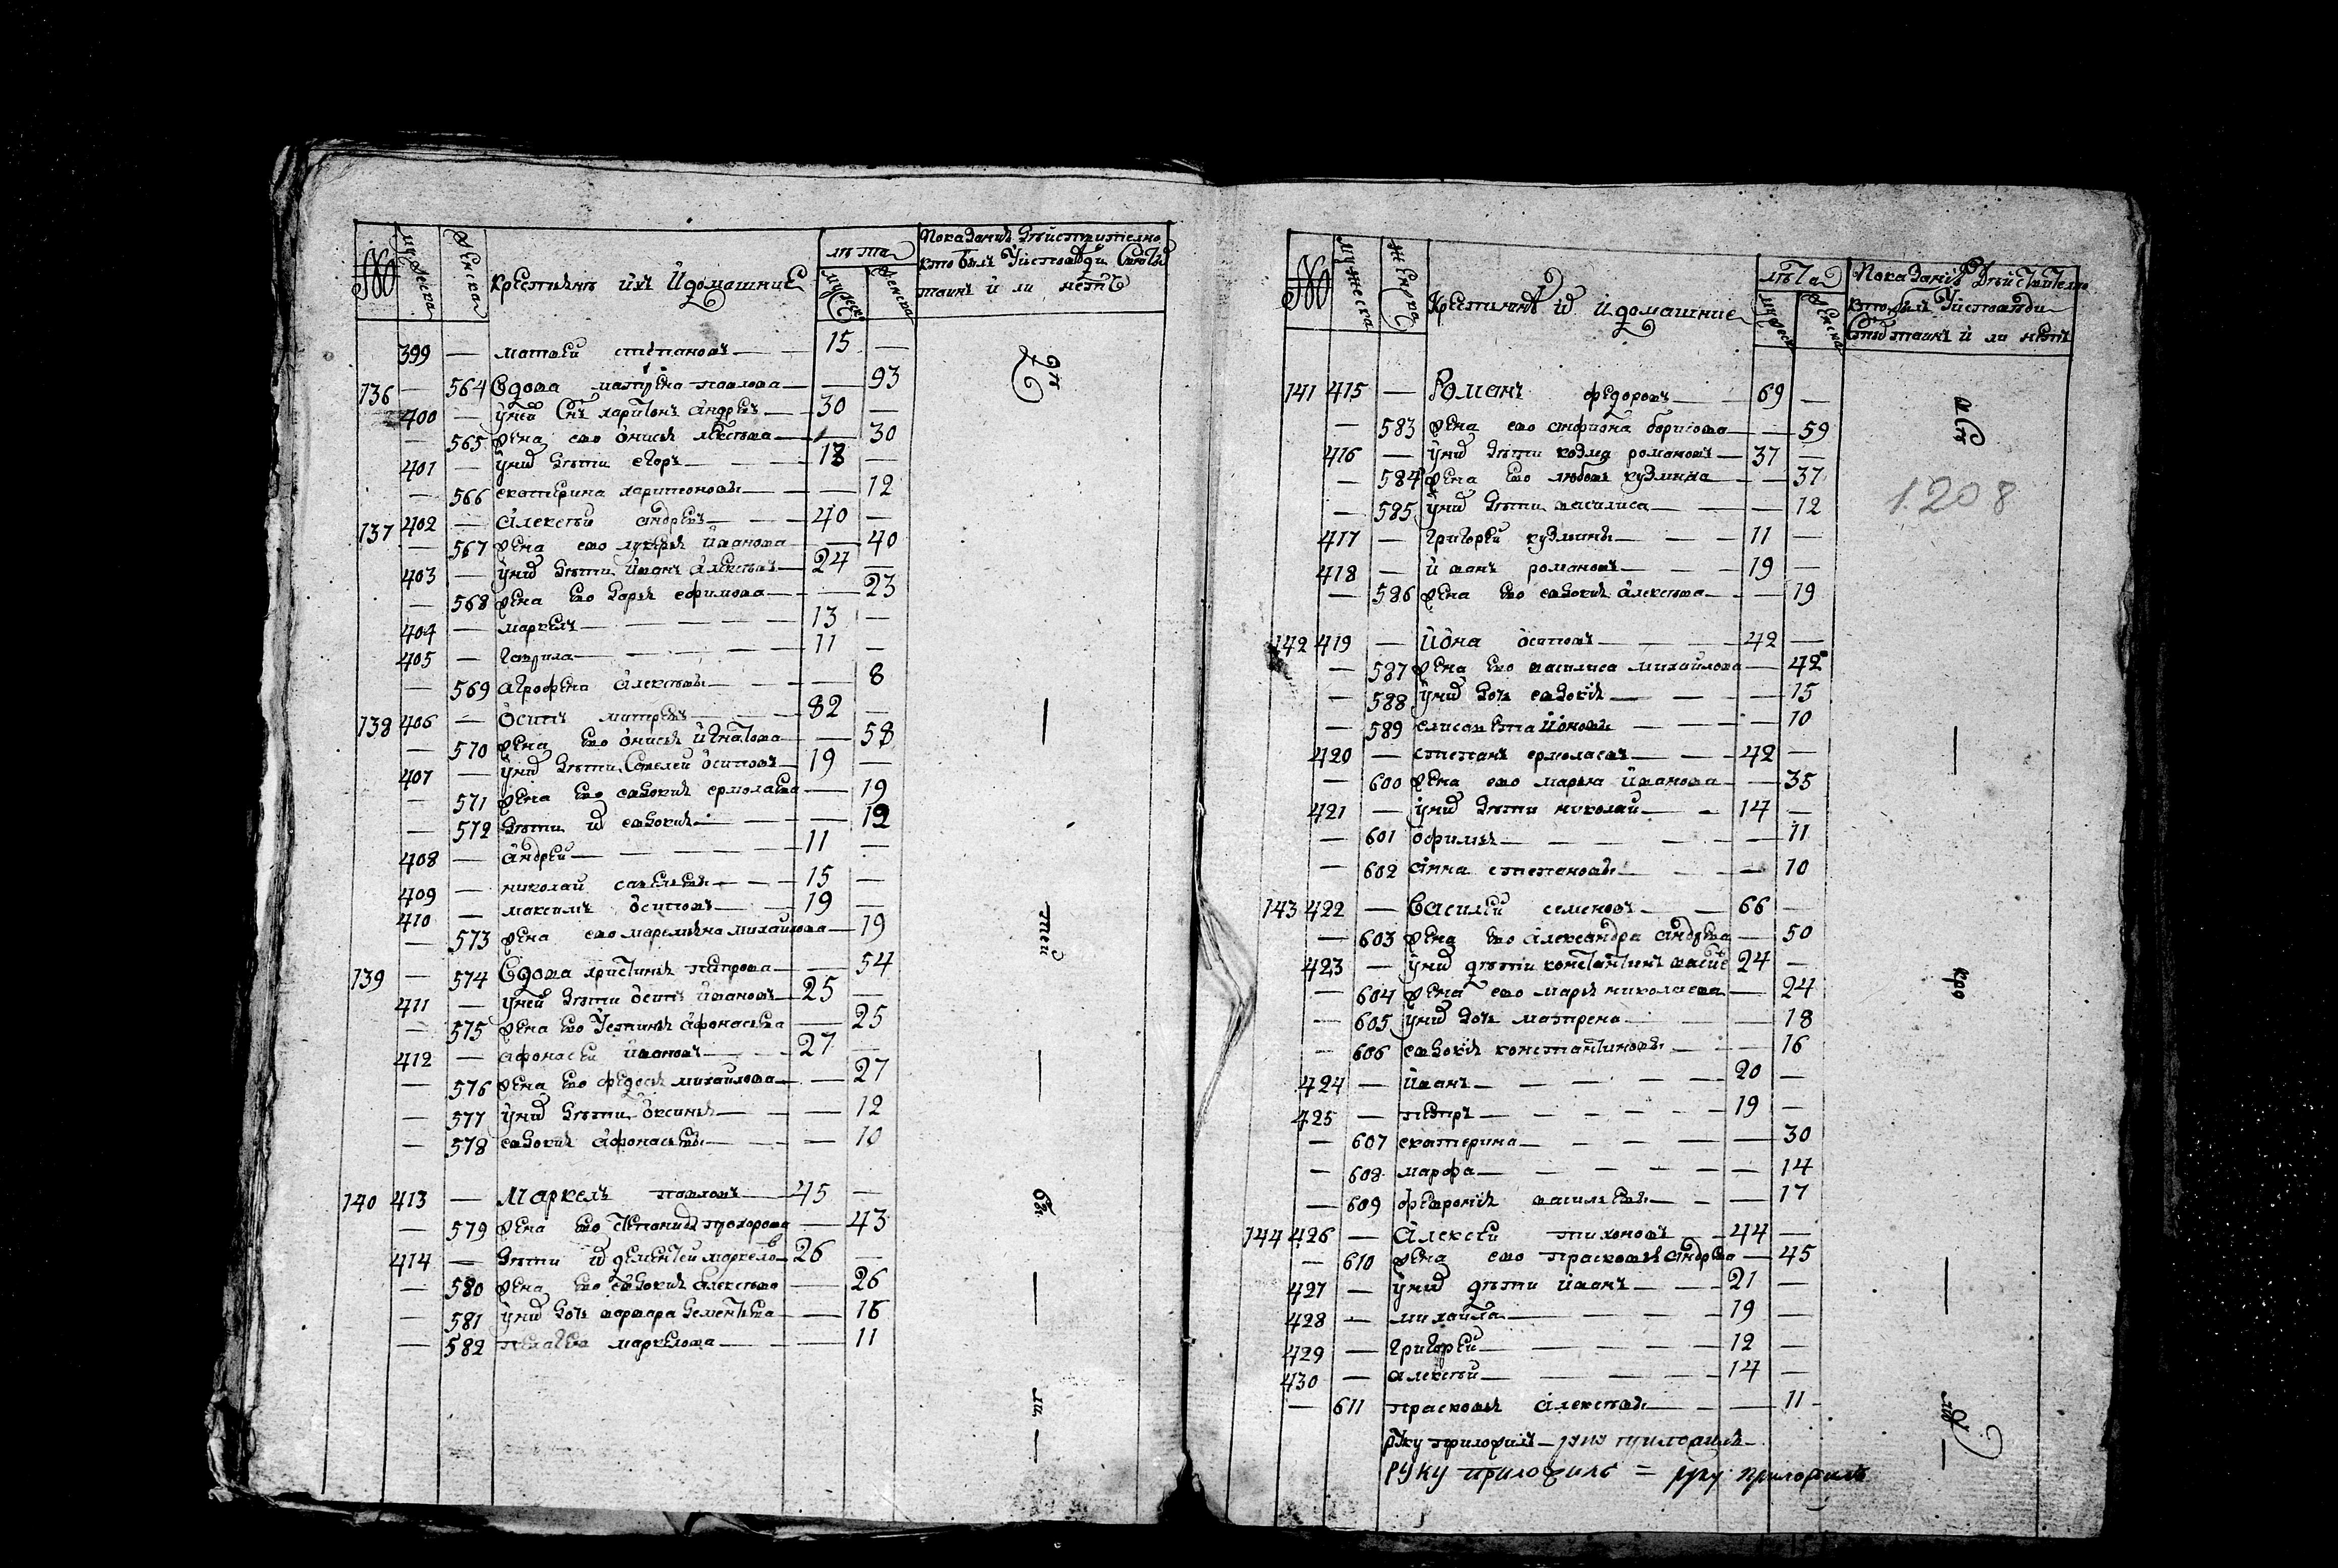 № мужеска женска крестьянѣ ихъ и домашние лѣта мужеска женска Показаниѣ дѣйствително
кто былъ у исповѣди святыхъ
таинъ и ли нетъ
399 — матвей степановъ — 15 —
136 — 564 вдова матрена павлова — — 93
400 — у ней снъ харитонъ андреевъ — 30 —
— 565 жена ево онисья алексѣева — — 30
401 — у них дѣти егоръ — 18 —
— 566 екатерина харитоновы — — 12
137 402 — алексѣй андреевъ — 40 —
— 567 жена ево лукерья иванова — — 40
403 — у них дѣти иванъ алексѣевъ — 24 —
— 568 жена ево дарья ефимова — — 23
404 — маркелъ — 13 —
405 — гаврила — 11 —
— 569 аграфена алексѣевы — — 8
138 406 — осипъ митреевъ — 82 —
— 570 жена ево онисья игнатова — — 58
407 — у них дѣти савелей осиповъ — 19 —
— 571 жена ево евдокия ермолаева — — 19
— 572 дѣти их евдокия — — 12
408 — андрей — 11 —
409 — николай савельевы — 15 —
410 — максимъ осиповъ — 19 —
— 573 жена ево маремьяна михайлова — 19
139 — 574 вдова христинья петрова — — 54
411 — у ней дѣти осипъ ивановъ — 25 —
— 575 жена ево устинья афонасьева — 25
412 — афонасей ивановъ — 27 —
— 576 жена ево федосья михайлова — — 27
— 577 у них дѣти оксинья — — 12
— 578 евдокия афонасьевы — — 10
140 413 — маркелъ павловъ — 45 —
— 579 жена ево степанида прохорова — 43
414 — дѣти их дементей маркеловъ — 26 —
— 580 жена ево евдокия алексѣева — 26
— 581 у них дочь варвара дементьева — 16
— 582 пелагея маркелова — — 11
№ мужеска женска крестьянѣ их и домашние лѣта мужеска женска Показаниѣ дѣйствително
кто былъ у исповѣди
святыхъ таинъ и ли нетъ
141 415 — романъ федоровъ — 69 —
— 583 жена ево стефнона борисова — — 59
416 — у них дѣти козма романовъ — 37 —
— 584 жена ево любовь кузмина — — 37
— 585 у них дѣти василиса — — 12
1208
417 — григорей кузмины — 11 —
418 — иванъ романовъ — 19 —
— 586 жена ево евдокия алексѣева — — 19
142 419 — иона осиповъ — 42 —
— 587 жена ево василиса михайлова — 42
— 588 у них дочь евдокия — — 15
— 589 елисавета ионовы — — 10
420 — степанъ ермолаевъ — 42 —
— 600 жена ево марья иванова — — 35
421 — у них дѣти николай — 14 —
— 601 офимья — — 11
— 602 анна степановы — — 10
143 422 — василей семеновъ — 66 —
— 603 жена ево александра андреева — 50
423 — у них дѣти константинъ василе 24 —
— 604 жена ево марья николаева — 24
— 605 у них дочь матрена — — 18
— 606 евдокия константиновы — — 16
424 — иванъ — 20 —
425 — петръ — 19 —
— 607 екатерина — — 30
— 608 марфа — — 14
— 609 феврония васильевы — — 17
144 426 — алексей тихоновъ — 44 —
— 610 жена ево прасковья андреева — 45
427 — у них дѣти иванъ — 21 —
428 — михайла — 19 —
429 — григорей — 12 —
430 — алексѣй — 14 —
— 611 прасковья алексѣевы — — 11
руку приложилъ — руку приложилъ
руку приложилъ = руку приложилъ